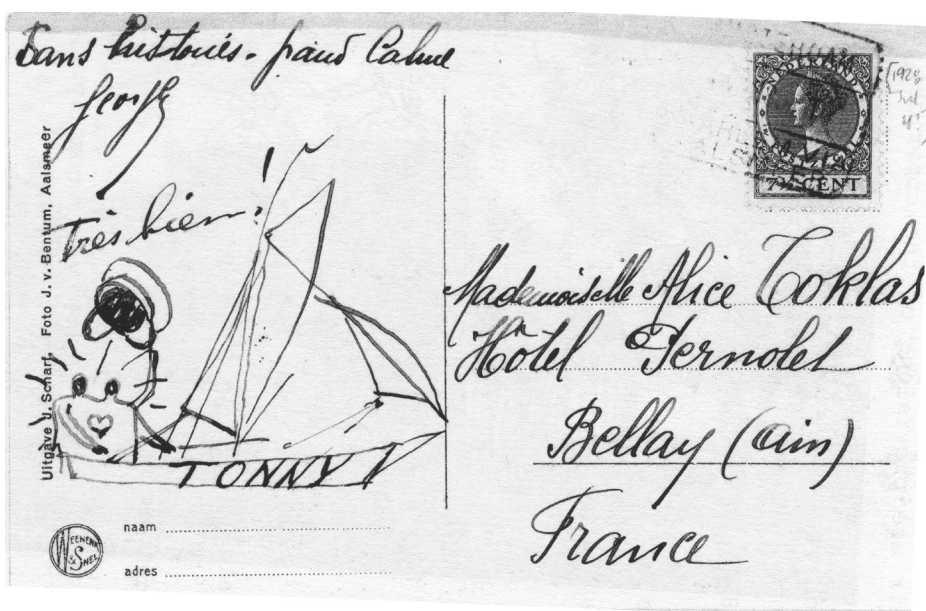 Sans histoires. grand Calme
George
Très bien!
TONNY
Uitgave J. Scharf. Foto J. v. Bentum, Aalsmeer
WEENENK & SNEL
naam
adres
NEDERLAND
7½ CENT
[1928
Jul
Mademoiselle Alice Toklas
Hôtel Pernolet
Bellay (Ain)
France